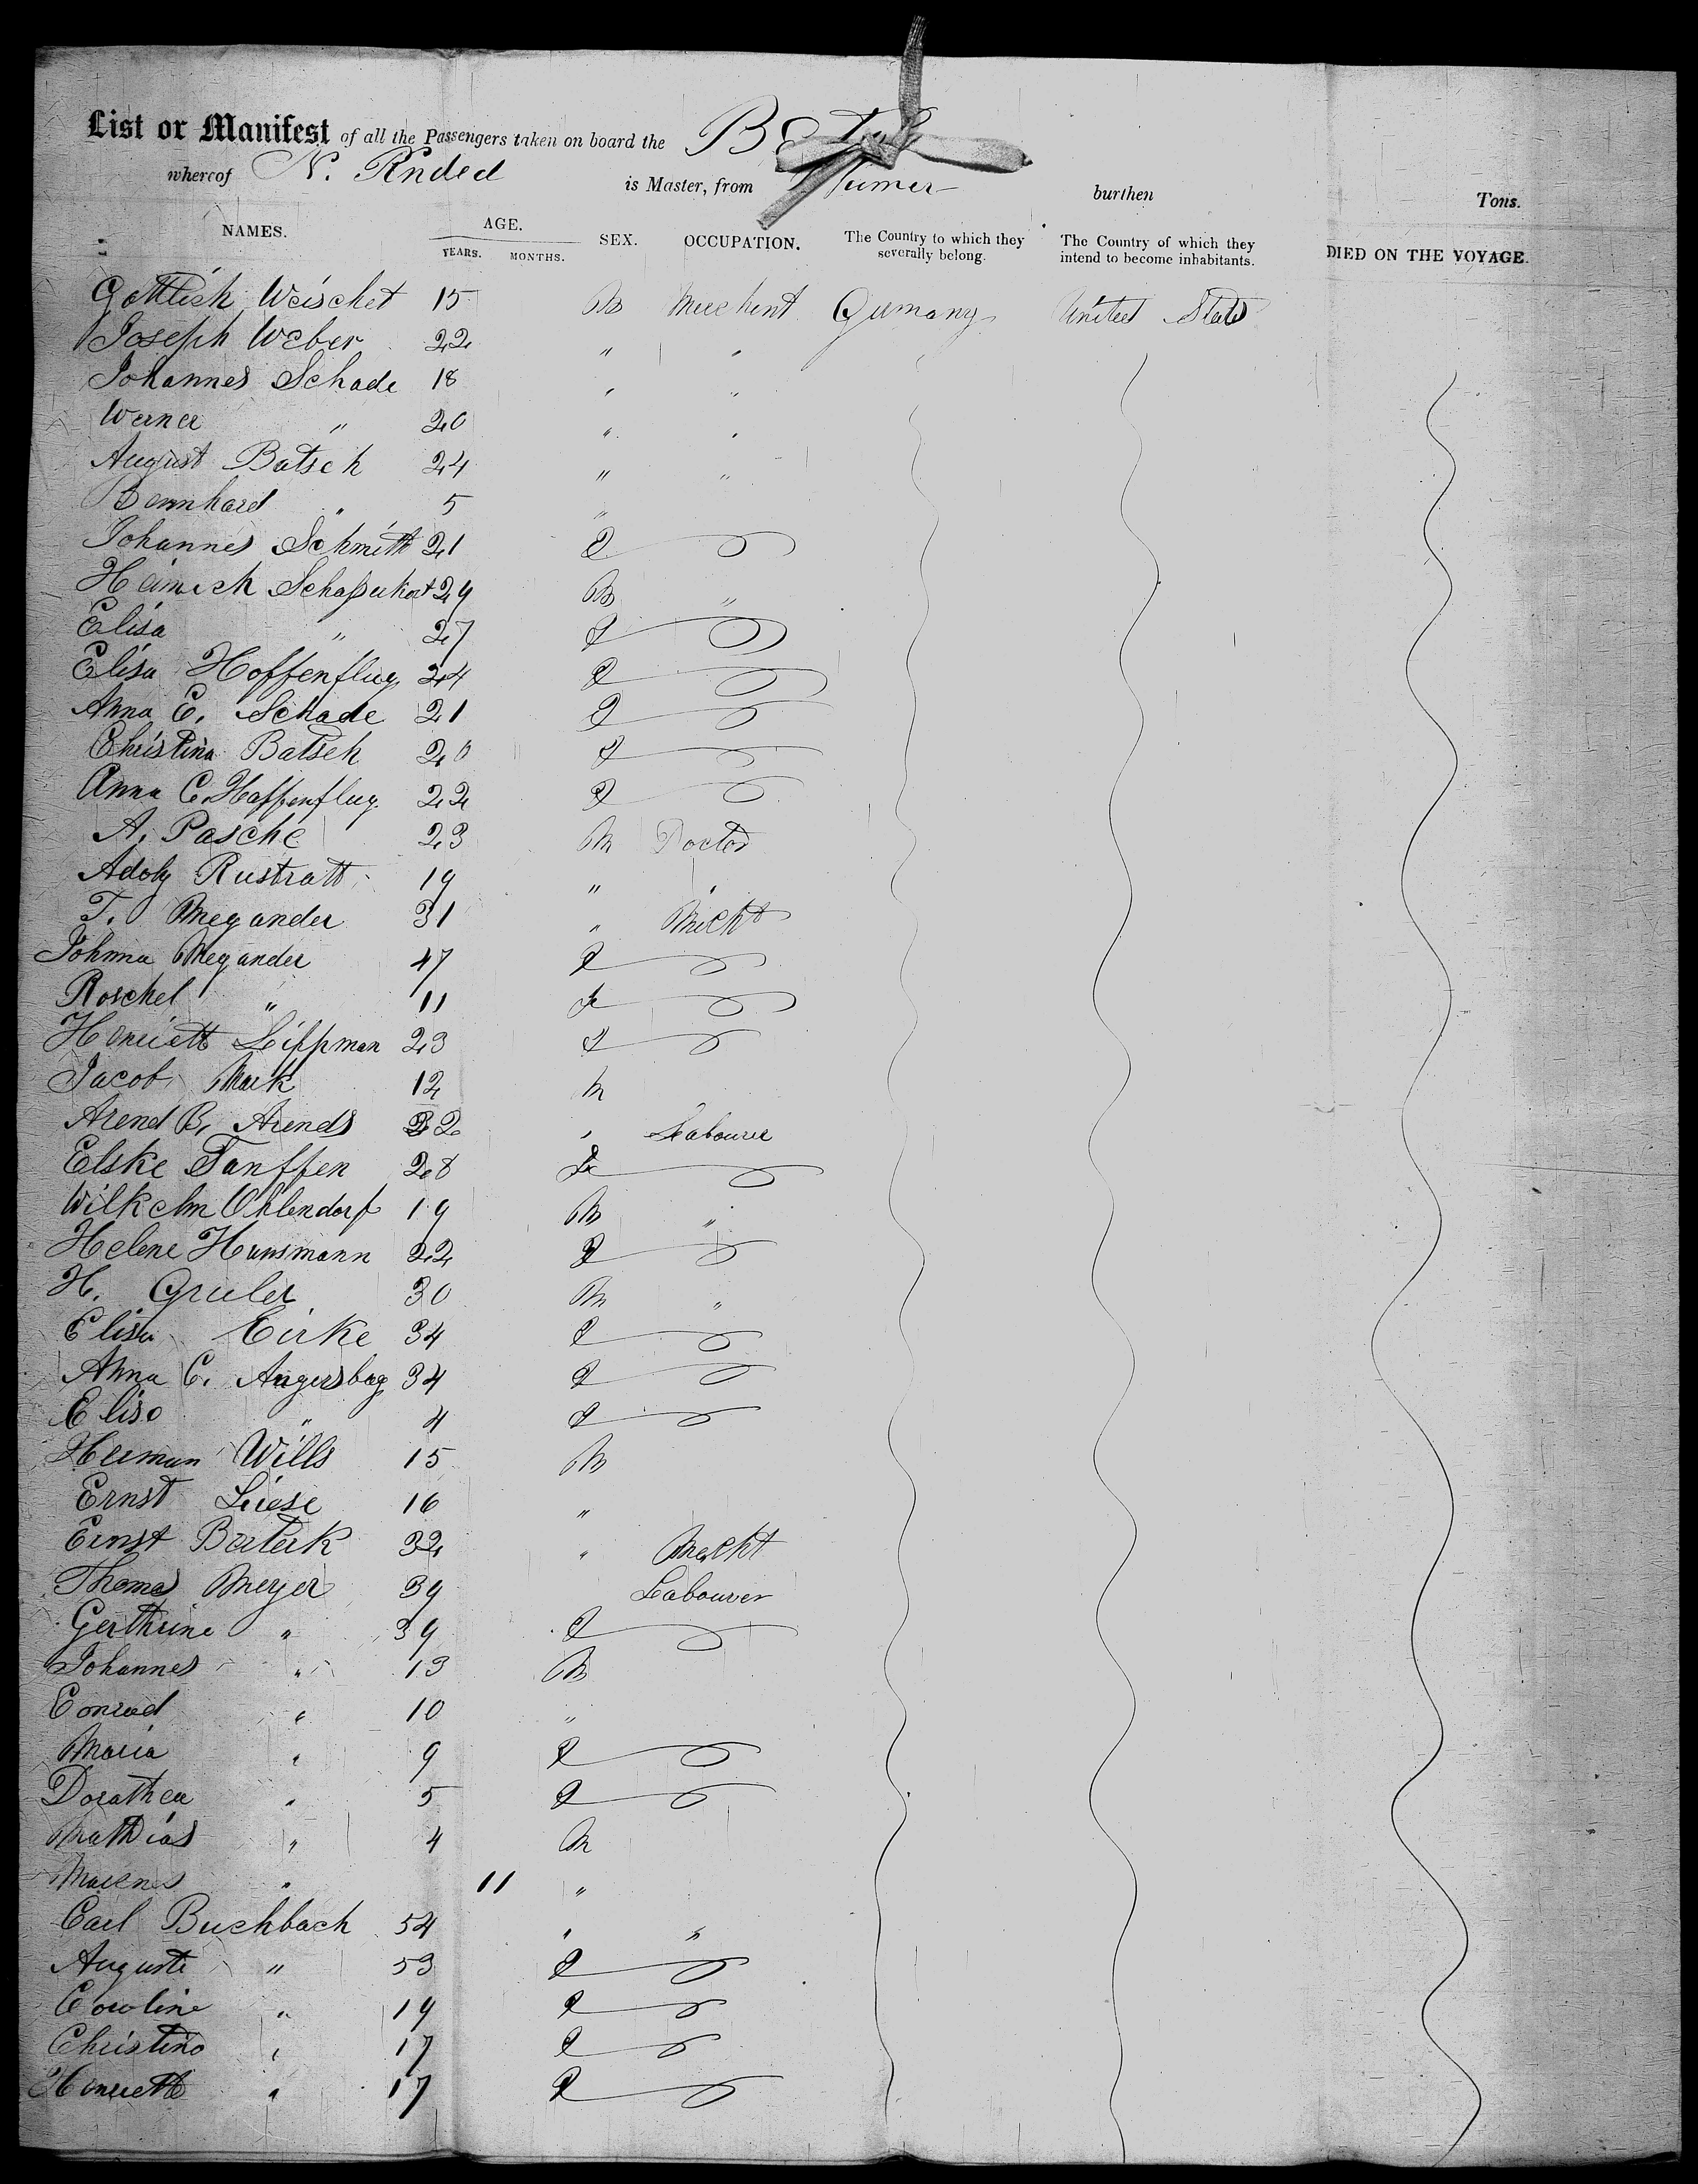 List or Manifest of all the Passengers taken on board the
whereof N. Rnded is Master, from burthen Tons.
NAMES. AGE. YEARS. MONTHS. SEX. OCCUPATION. The Country to which they severally belong. The Country of which they intend to become inhabitants. DIED ON THE VOYAGE.
Gottlieh Weischet 15 M Merchent Germany United States
Joseph Weber 22 " "
Johannes Schade 18 " "
Werner " 20 " "
August Batsch 24 " "
Bernhard " 5 "
Johannes Schmitt 21 f
Heinrich 29 M "
Elisa " 27 f
Elisa Hoffenflug 24 f
Anna E. Schade 21 f
Christina Batsch 20 f
Anna C. Haffenflug 22 f
A. Pasche 23 M Doctor
Adolg Rustratt 19 " "
T. Meyander 31 " Mercht
Johnna Meyander 47 f
Roschel " 11 f
Henriett Lippman 23 f
Jacob Mark 12 M
Arend B. Arends 32 " Labourer
Elske Tanffen 28 f
Wilhelm Ohlendorf 19 M "
Helene Hunsmann 22 f
H. Gruler 30 M "
Elisa Eirke 34 f
Anna C. Angersbag 34 f
Elise " 4 f
Herman Wills 15 M
Ernst Liese 16 "
Ernst 32 " Mercht
Thomas Meyer 39 Labourer
Gerthrine " 39 f
Johannes " 13 M
Conrad " 10 "
Maria " 9 f
Dorathea " 5 f
Mathias " 4 M
" 11 "
Carl Buchbach 54 " "
Auguste " 53 f
Caroline " 19 f
Christine " 17 f
Henriette " 17 f